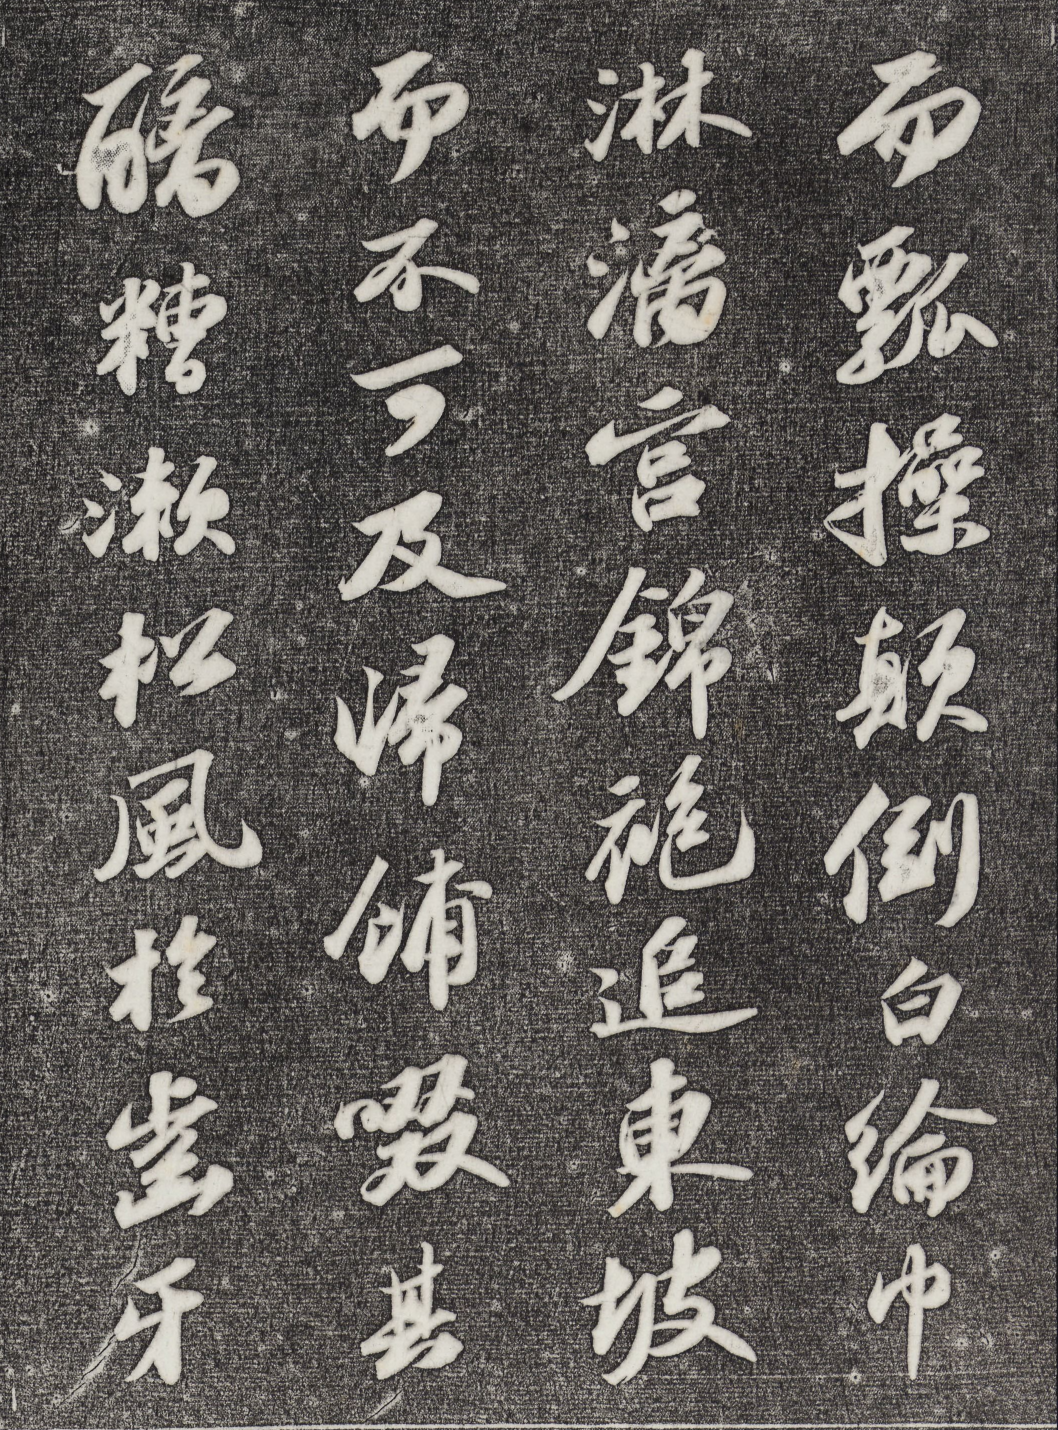 而瓢操顛倒白綸巾
淋漓宮錦袍追東坡
而不可及歸餔歠其
醨糟漱松風於齒牙